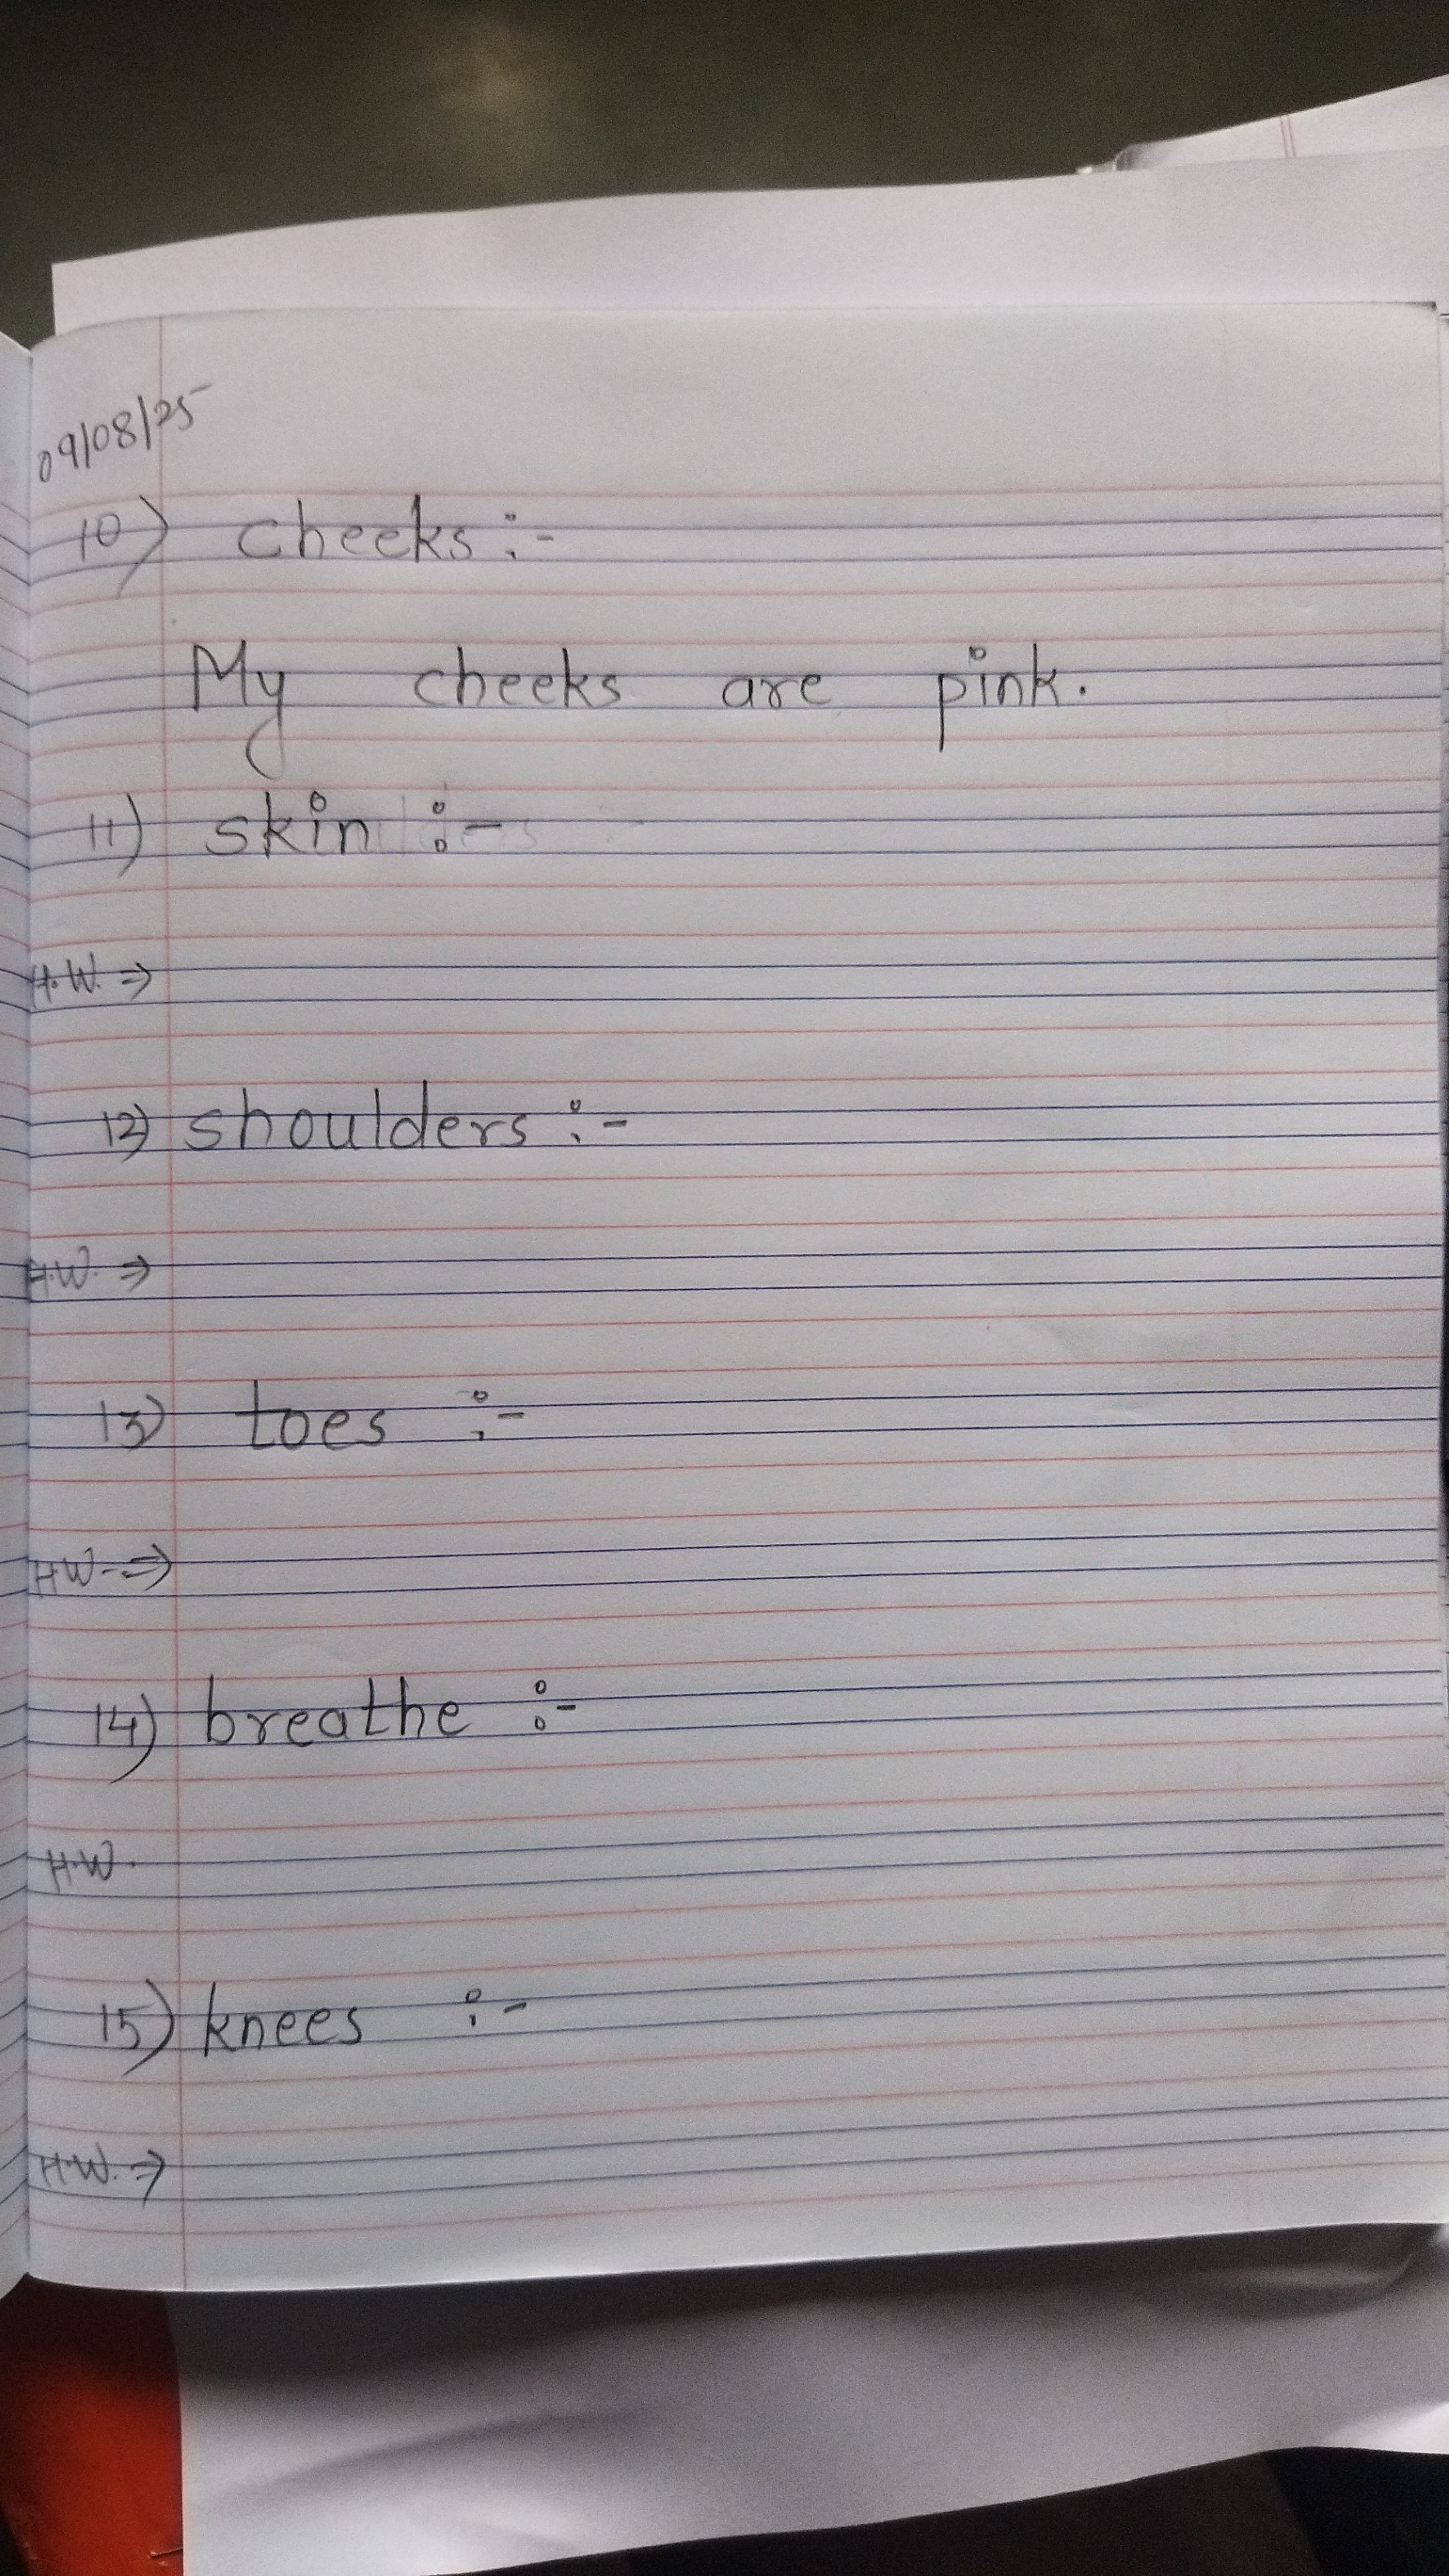 09/08/25
10) cheeks :-
My cheeks are pink.
11) skin :-
H.W. ⇒
12) shoulders :-
H.W. ⇒
13) toes :-
H.W. ⇒
14) breathe :-
H.W.
15) knees :-
H.W. ⇒